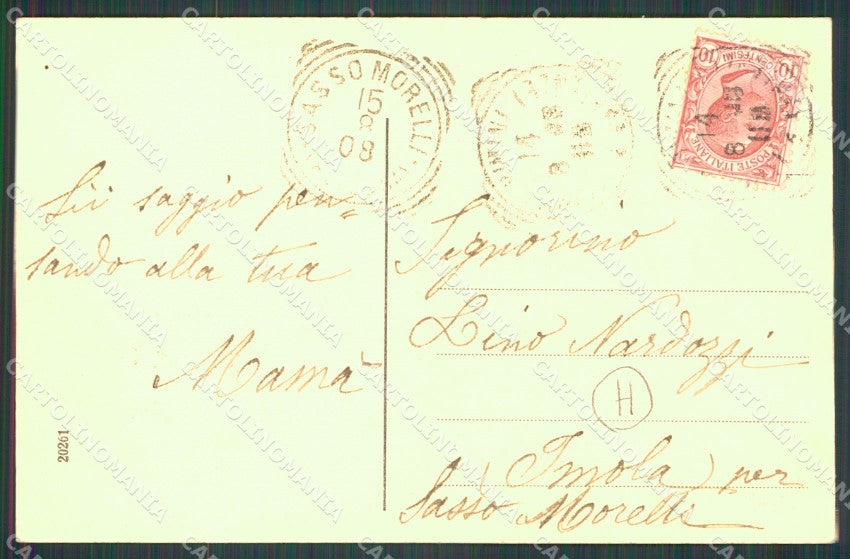 SASSO MORELLI
15
8
08
14
8
POSTE ITALIANE
CENTESIMI
10 10
14
8
Sii saggio pen=
sando alla tua
Mamà
Signorino
Lino Nardozzi
H
(Imola) per
Sasso Morelli
20261
CARTOLINOMANIA